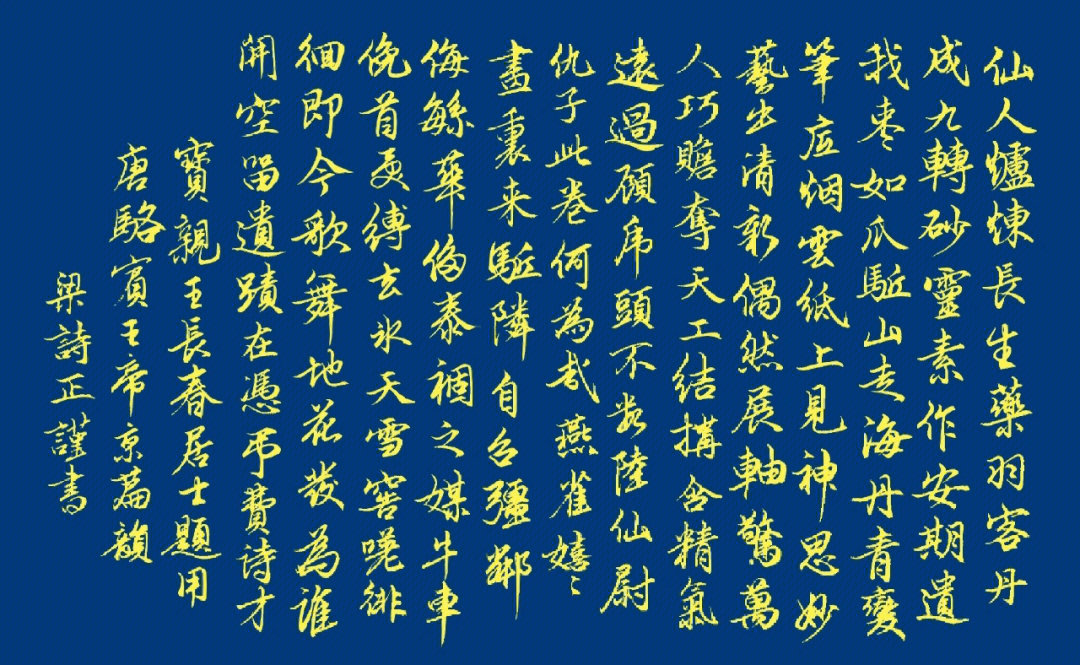 仙人爐煉長生藥羽客丹
成九轉砂靈素作安期遺
我棗如瓜駈山走海丹青變
筆底烟雲紙上見神思妙
藝出清新偶然展軸驚萬
人巧贍奪天工結搆含精氣
遠過顧虎頭不数陸仙尉
仇子此卷何為哉燕雀嬉〻
畫裏来駈隣自召彊鄰
侮緐華侈泰禍之媒牛車
俛首縛去氷天雪窖嗟徘
徊即今歌舞地花發為誰
開空留遺蹟在憑弔費詩才
寶親王長春居士題用
唐駱賓王帝京篇韻
梁詩正謹書